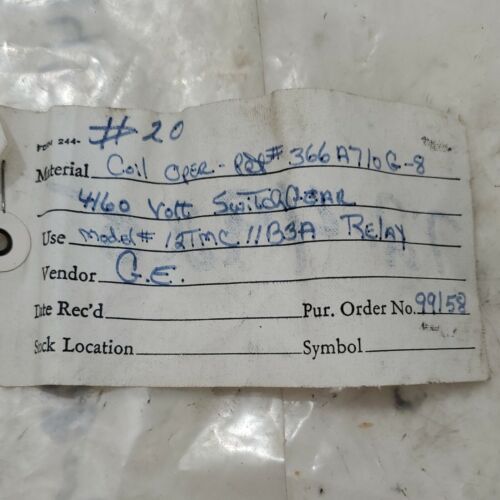 FORM 244- #20
Material Coil OPER - P## 366A710G-8
4160 Volt SwitchGEAR
Use Model# 12TMC11B3A RElay
Vendor G.E.
Date Rec'd Pur. Order No. 99158
Stock Location Symbol